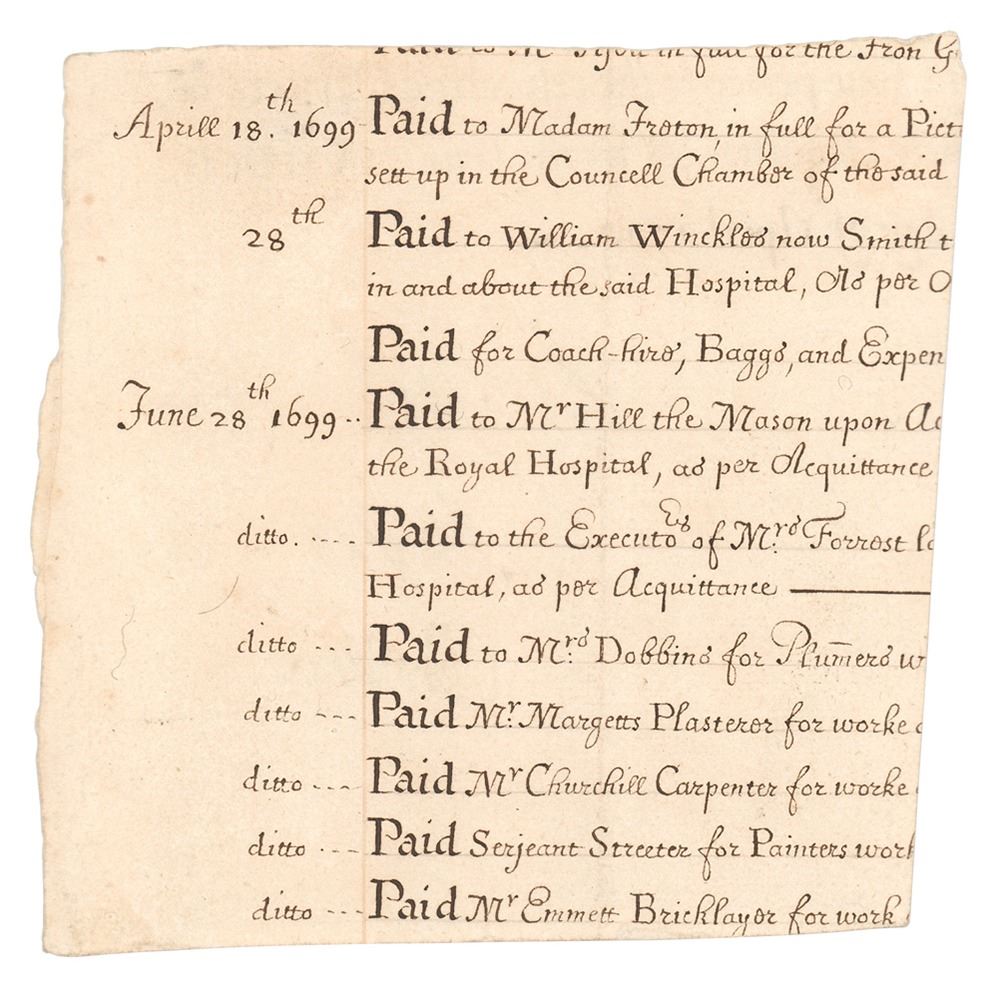 Paid to Mr Tijou in full for the Iron G
Aprill 18.th 1699 Paid to Madam Freton, in full for a Pict
sett up in the Councell Chamber of the said
28th Paid to William Winckles now Smith t
in and about the said Hospital, As per O
Paid for Coach-hire, Baggs, and Expen
June 28th 1699.. Paid to Mr Hill the Mason upon Ac
the Royal Hospital, as per Acquittance
ditto. .... Paid to the Executors of Mrs Forrest la
Hospital, as per Acquittance
ditto ... Paid to Mrs Dobbins for Plum̄ers w
ditto --- Paid Mr. Margetts Plasterer for worke
ditto ... Paid Mr Churchill Carpenter for worke
ditto ... Paid Serjeant Streeter for Painters work
ditto --- Paid Mr Emmett Bricklayer for work